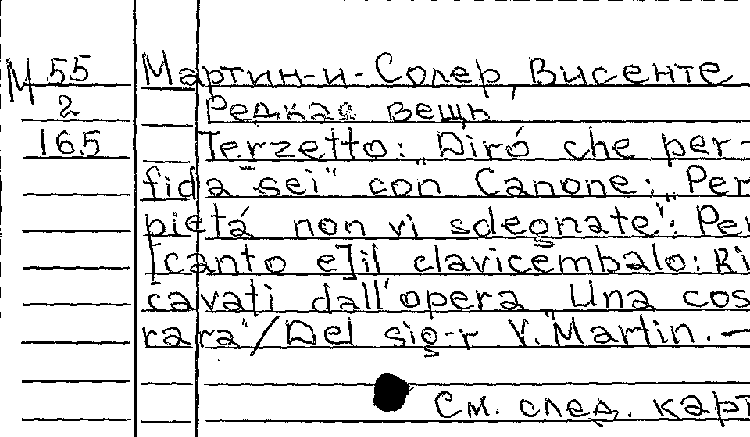 М 55 Мартин-и-Солер, Висенте
2 Редкая вещь
165 Terzetto: „Diró che per-
fida sei" con Canone: „Per
pietá non vi sdegnate": Per
[canto e] il clavicembalo: Ri
cavati dall'opera „Una cos
rara"/Del sig-r V. Martin. —
См. след. карт